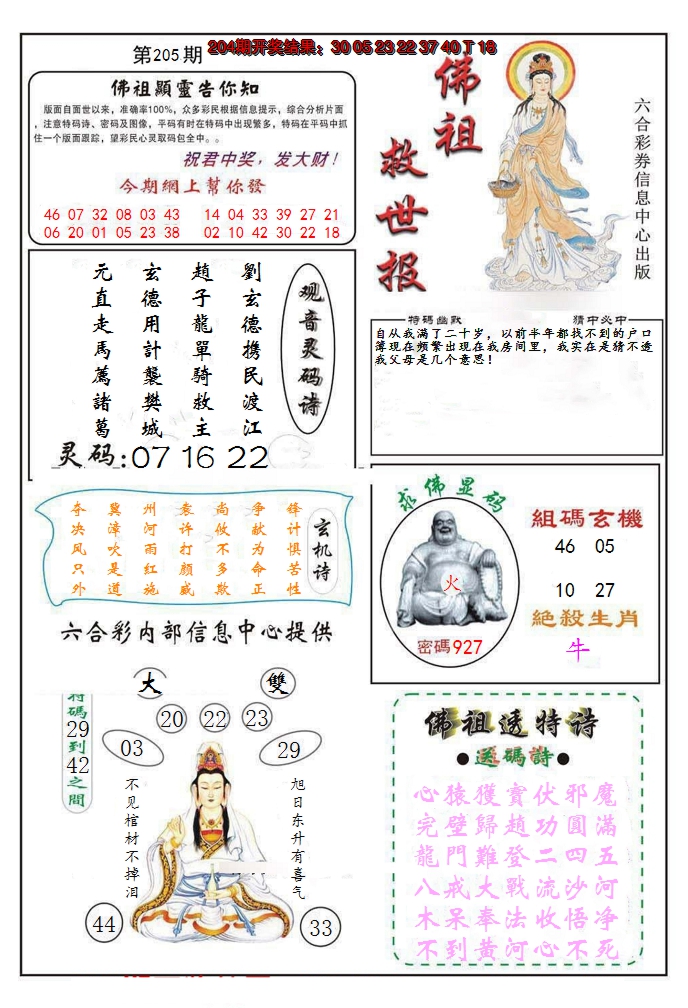 第205期
204期开奖结果：30 05 23 22 37 40 T 18
佛祖顯靈告你知
版面自面世以来，准确率100%，众多彩民根据信息提示，综合分析片面
，注意特码诗、密码及图像，平码有时在特码中出现繁多，特码在平码中抓
住一个版面跟踪，望彩民心灵取码包全中。。
祝君中奖，发大财！
今期網上幫你發
46 07 32 08 03 43 14 04 33 39 27 21
06 20 01 05 23 38 02 10 42 30 22 18
佛祖救世报
六合彩券信息中心出版
观音灵码诗
劉玄德携民渡江
趙子龍單騎救主
玄德用計襲樊城
元直走馬薦諸葛
灵码:07 16 22
特碼幽默
猜中必中
自从我满了二十岁，以前半年都找不到的户口
簿现在频繁出现在我房间里，我实在是猜不透
我父母是几个意思！
玄机诗
锋计惧苦性
争献为命正
尚攸不多欺
袁许打颜威
州河雨红施
冀漳吹是道
夺决风只外
六合彩内部信息中心提供
求佛显码
火
密碼927
組碼玄機
46 05
10 27
絶殺生肖
牛
大
雙
特碼29到42之間
20
22
23
03
29
不见棺材不掉泪
旭日东升有喜气
44
33
佛祖透特诗
●送碼詩●
心猿獲寶伏邪魔
完璧歸趙功圓滿
龍門難登二四五
八戒大戰流沙河
木呆奉法收悟净
不到黄河心不死